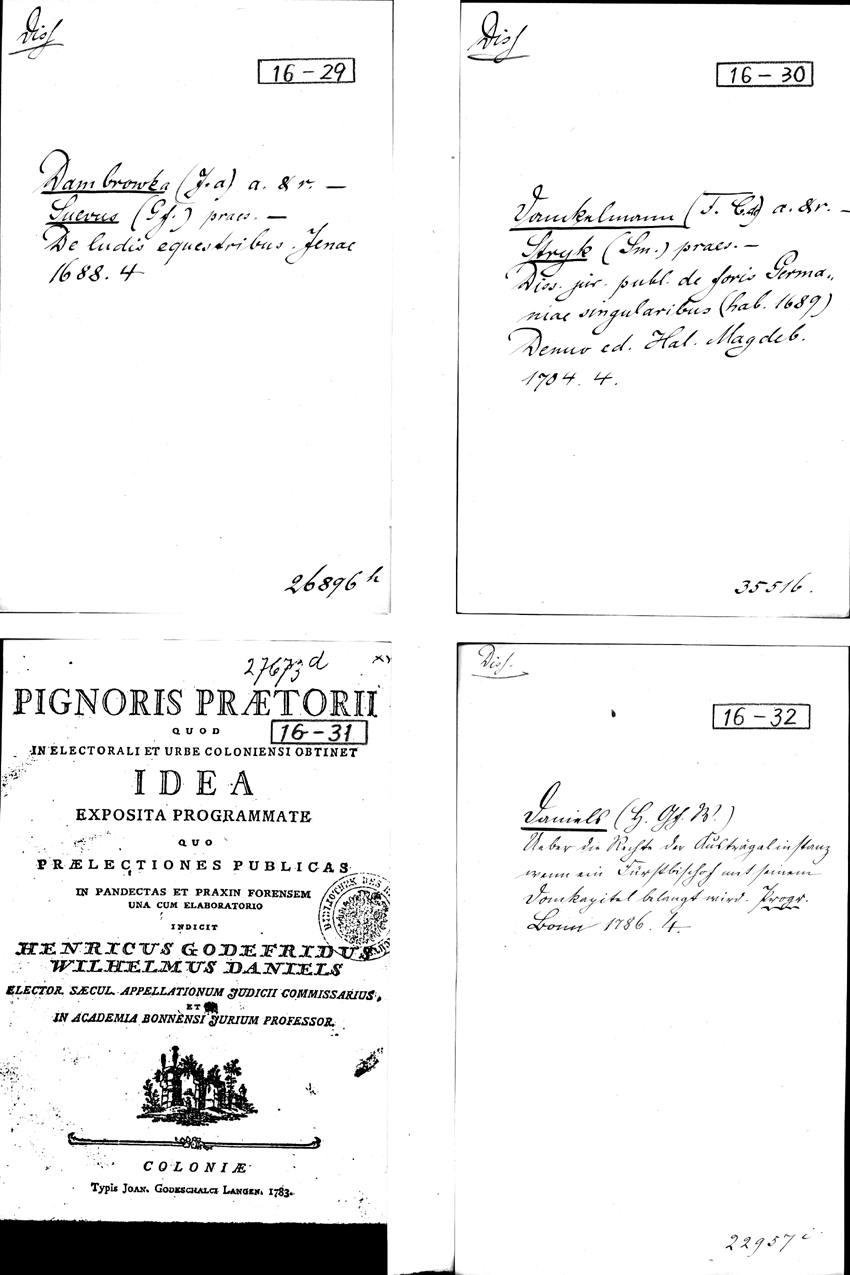 Diss
16-29
Dambrowka (J. a) a. & r. —
Suevus (Gf.) praes. —
De ludis equestribus. Jenae
1688. 4
26896 h
Diss
16-30
Danckelmann (F. C. de) a. & r. —
Stryk (Sm.) praes. —
Diss. jur. publ. de foris Germa„
niae singularibus (hab. 1689)
Denuo ed. Hal. Magdeb.
1704. 4.
35516.
27673 d
PIGNORIS PRÆTORII
QUOD
16-31
IN ELECTORALI ET URBE COLONIENSI OBTINET
IDEA
EXPOSITA PROGRAMMATE
QUO
PRÆLECTIONES PUBLICAS
IN PANDECTAS ET PRAXIN FORENSEM
UNA CUM ELABORATORIO
INDICIT
HENRICUS GODEFRIDUS
WILHELMUS DANIELS
ELECTOR. SÆCUL. APPELLATIONUM JUDICII COMMISSARIUS,
ET
IN ACADEMIA BONNENSI JURIUM PROFESSOR.
BIBLIOTHEK DES
COLONIÆ
Typis JOAN. GODESCHALCI LANGEN. 1783.
Diss.
16-32
Daniels (H. Gf. W.)
Ueber die Rechte der Austrägalinstanz
wenn ein Fürstbischof mit seinem
Domkapitel belangt wird. Progr.
Bonn 1786. 4.
22957 i